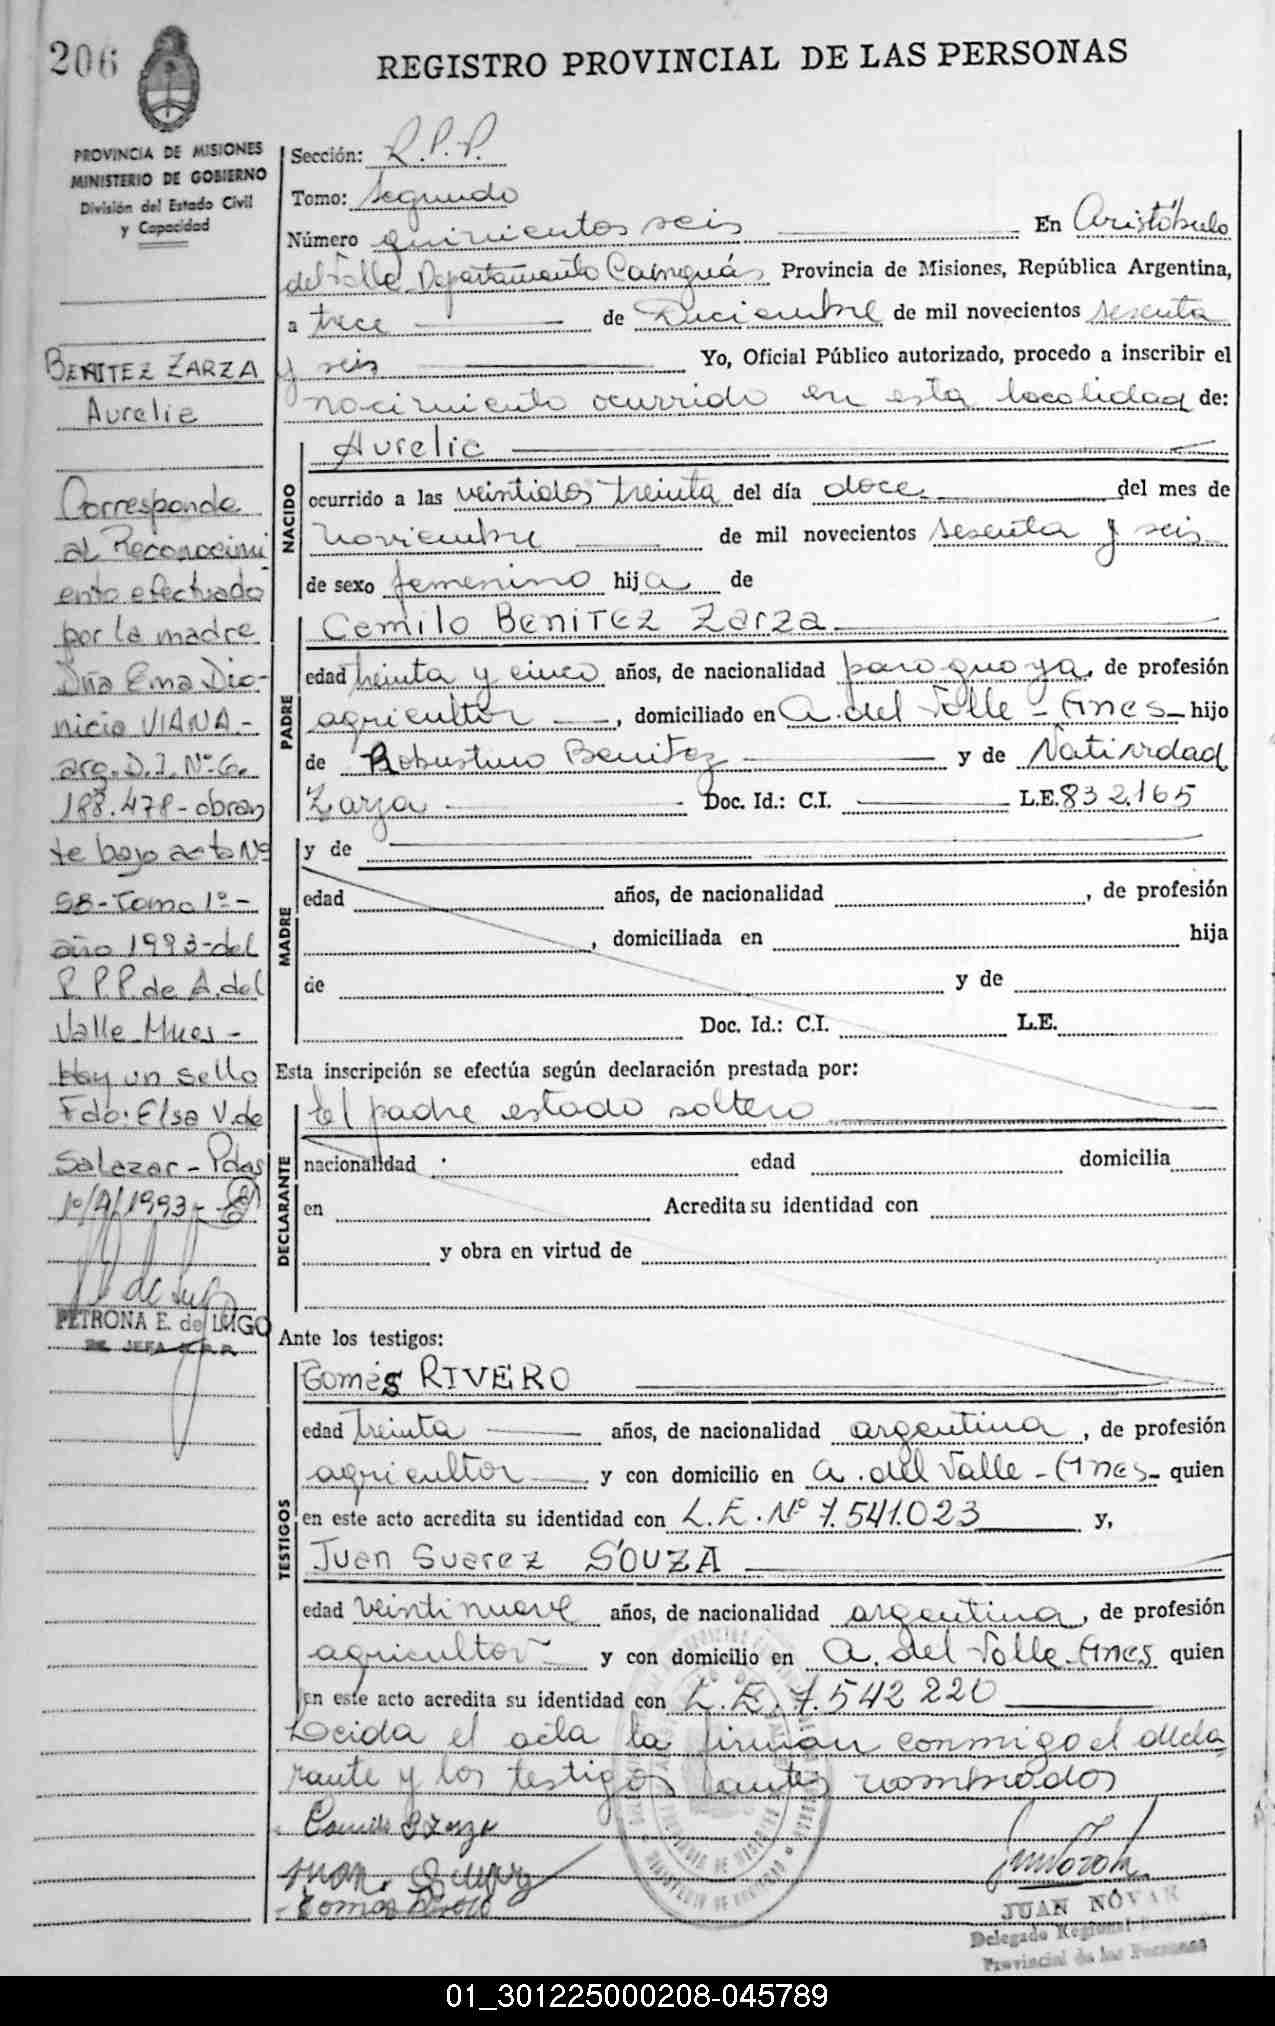 206
REGISTRO PROVINCIAL DE LAS PERSONAS
PROVINCIA DE MISIONES
MINISTERIO DE GOBIERNO
División del Estado Civil
y Capacidad
BENITEZ ZARZA
Aurelia
Corresponde
al Reconocimi
ento efectuado
por la madre
Dña Ema Dio-
nicia VIANA-
arg. D.I. Nº 6.
188.478- obran
te bajo acta Nº
58-Tomo 1º-
año 1993-del
R.P.P. de A. del
Valle Mnes-
Hay un sello
Fdo: Elsa V. de
Salazar - Pdas
1º/4/1993-
PETRONA E. de LUGO
JEFA R.P.P.
Sección: R.P.P.
Tomo: Segundo
Número quinientos seis En Aristóbulo
del Valle Departamento Cainguás Provincia de Misiones, República Argentina,
a trece de Diciembre de mil novecientos sesenta
y seis Yo, Oficial Público autorizado, procedo a inscribir el
nacimiento ocurrido en esta localidad de:
NACIDO
Aurelia
ocurrido a las veintidos treinta del día doce del mes de
Noviembre de mil novecientos sesenta y seis
de sexo femenino hija de
PADRE
Camilo BENITEZ Zarza
edad treinta y cinco años, de nacionalidad paraguaya, de profesión
agricultor, domiciliado en A. del Valle - Mnes - hijo
de Robustino Benitez y de Natividad
Zarza Doc. Id.: C.I. L.E. 832.165
MADRE
y de
edad años, de nacionalidad , de profesión
, domiciliada en hija
de y de
Doc. Id.: C.I. L.E.
Esta inscripción se efectúa según declaración prestada por:
DECLARANTE
el padre estado soltero
nacionalidad edad domicilia
en Acredita su identidad con
y obra en virtud de
Ante los testigos:
TESTIGOS
Tomás RIVERO
edad treinta años, de nacionalidad argentina, de profesión
agricultor y con domicilio en A. del Valle - Mnes - quien
en este acto acredita su identidad con L.E. Nº 7.541.023 y,
Juan Suarez SOUZA
edad veintinueve años, de nacionalidad argentina, de profesión
agricultor y con domicilio en A. del Valle - Mnes quien
en este acto acredita su identidad con L.E. 7.542220
Leida el acta la firman conmigo el decla
rante y los testigos antes nombrados
Camilo B Zarza
Juan Suarez
Tomas Rivero
JUAN NOVAK
Delegado Regional Registro
Provincial de las Personas
01_301225000208-045789